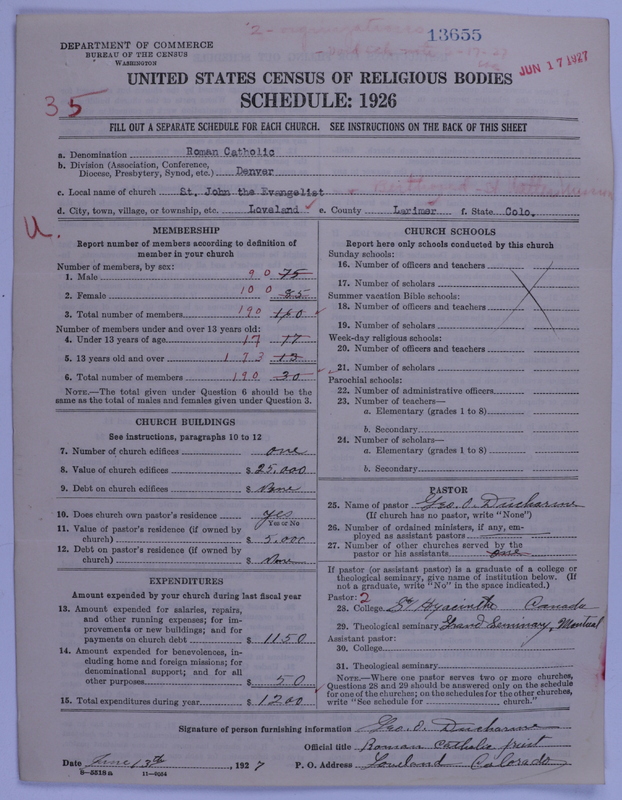 2-organizations
13655
JUN 17 1927
DEPARTMENT OF COMMERCE
BUREAU OF THE CENSUS
WASHINGTON
UNITED STATES CENSUS OF RELIGIOUS BODIES
SCHEDULE: 1926
35
FILL OUT A SEPARATE SCHEDULE FOR EACH CHURCH. SEE INSTRUCTIONS ON THE BACK OF THIS SHEET
a. Denomination Roman Catholic
b. Division (Association, Conference, Diocese, Presbytery, Synod, etc.) Denver
c. Local name of church St. John the Evangelist
d. City, town, village, or township, etc. Loveland e. County Larimer f. State Colo.
U.
MEMBERSHIP
Report number of members according to definition of
member in your church
Number of members, by sex:
1. Male 90 75
2. Female 100 85
3. Total number of members 190 160
Number of members under and over 13 years old:
4. Under 13 years of age 17 17
5. 13 years old and over 173 13
6. Total number of members 190 30
NOTE.—The total given under Question 6 should be the
same as the total of males and females given under Question 3.
CHURCH BUILDINGS
See instructions, paragraphs 10 to 12
7. Number of church edifices one
8. Value of church edifices $ 25,000
9. Debt on church edifices $ None
10. Does church own pastor's residence yes
Yes or No
11. Value of pastor's residence (if owned by
church) $ 5,000
12. Debt on pastor's residence (if owned by
church) $ None
EXPENDITURES
Amount expended by your church during last fiscal year
13. Amount expended for salaries, repairs,
and other running expenses; for im-
provements or new buildings; and for
payments on church debt $ 1150
14. Amount expended for benevolences, in-
cluding home and foreign missions; for
denominational support; and for all
other purposes $ 50
15. Total expenditures during year $ 1200
CHURCH SCHOOLS
Report here only schools conducted by this church
Sunday schools:
16. Number of officers and teachers
17. Number of scholars
Summer vacation Bible schools:
18. Number of officers and teachers
19. Number of scholars
Week-day religious schools:
20. Number of officers and teachers
21. Number of scholars
Parochial schools:
22. Number of administrative officers
23. Number of teachers—
a. Elementary (grades 1 to 8)
b. Secondary
24. Number of scholars—
a. Elementary (grades 1 to 8)
b. Secondary
PASTOR
25. Name of pastor Geo. O. Ducharme
(If church has no pastor, write "None")
26. Number of ordained ministers, if any, em-
ployed as assistant pastors
27. Number of other churches served by the
pastor or his assistants one
If pastor (or assistant pastor) is a graduate of a college or
theological seminary, give name of institution below. (If
not a graduate, write "No" in the space indicated.)
Pastor: 2
28. College St. Hyacinthe Canada
29. Theological seminary Grand Seminary, Montreal
Assistant pastor:
30. College
31. Theological seminary
NOTE.—Where one pastor serves two or more churches,
Questions 28 and 29 should be answered only on the schedule
for one of the churches; on the schedules for the other churches,
write "See schedule for church."
Signature of person furnishing information Geo. O. Ducharme
Official title Roman Catholic priest
Date June 13th, 1927 P. O. Address Loveland Colorado
8—5518a 11—9054